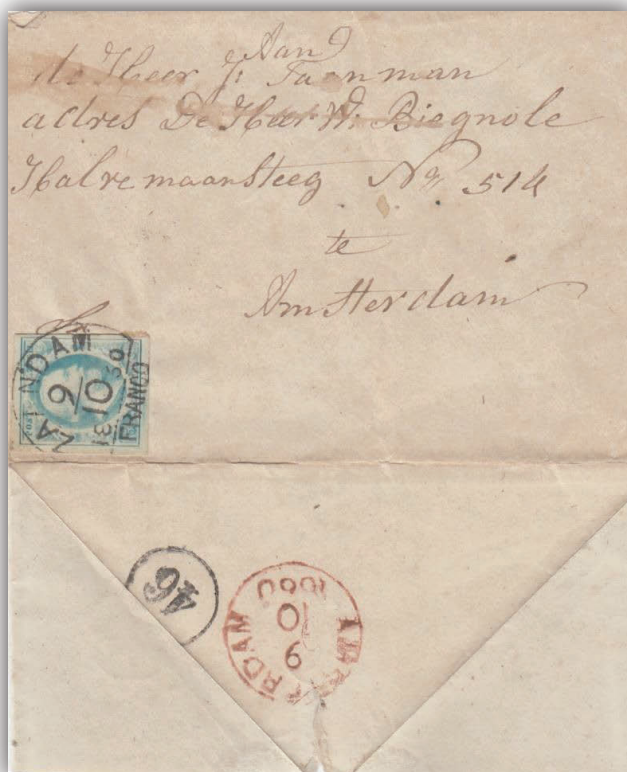 Aan
de Heer J: Taanman
adres De Heer W. Biegnole
Halvemaansteeg No 514
te
Amsterdam
ZAANDAM
9
10
FRANCO
46
AMSTERDAM
9
10